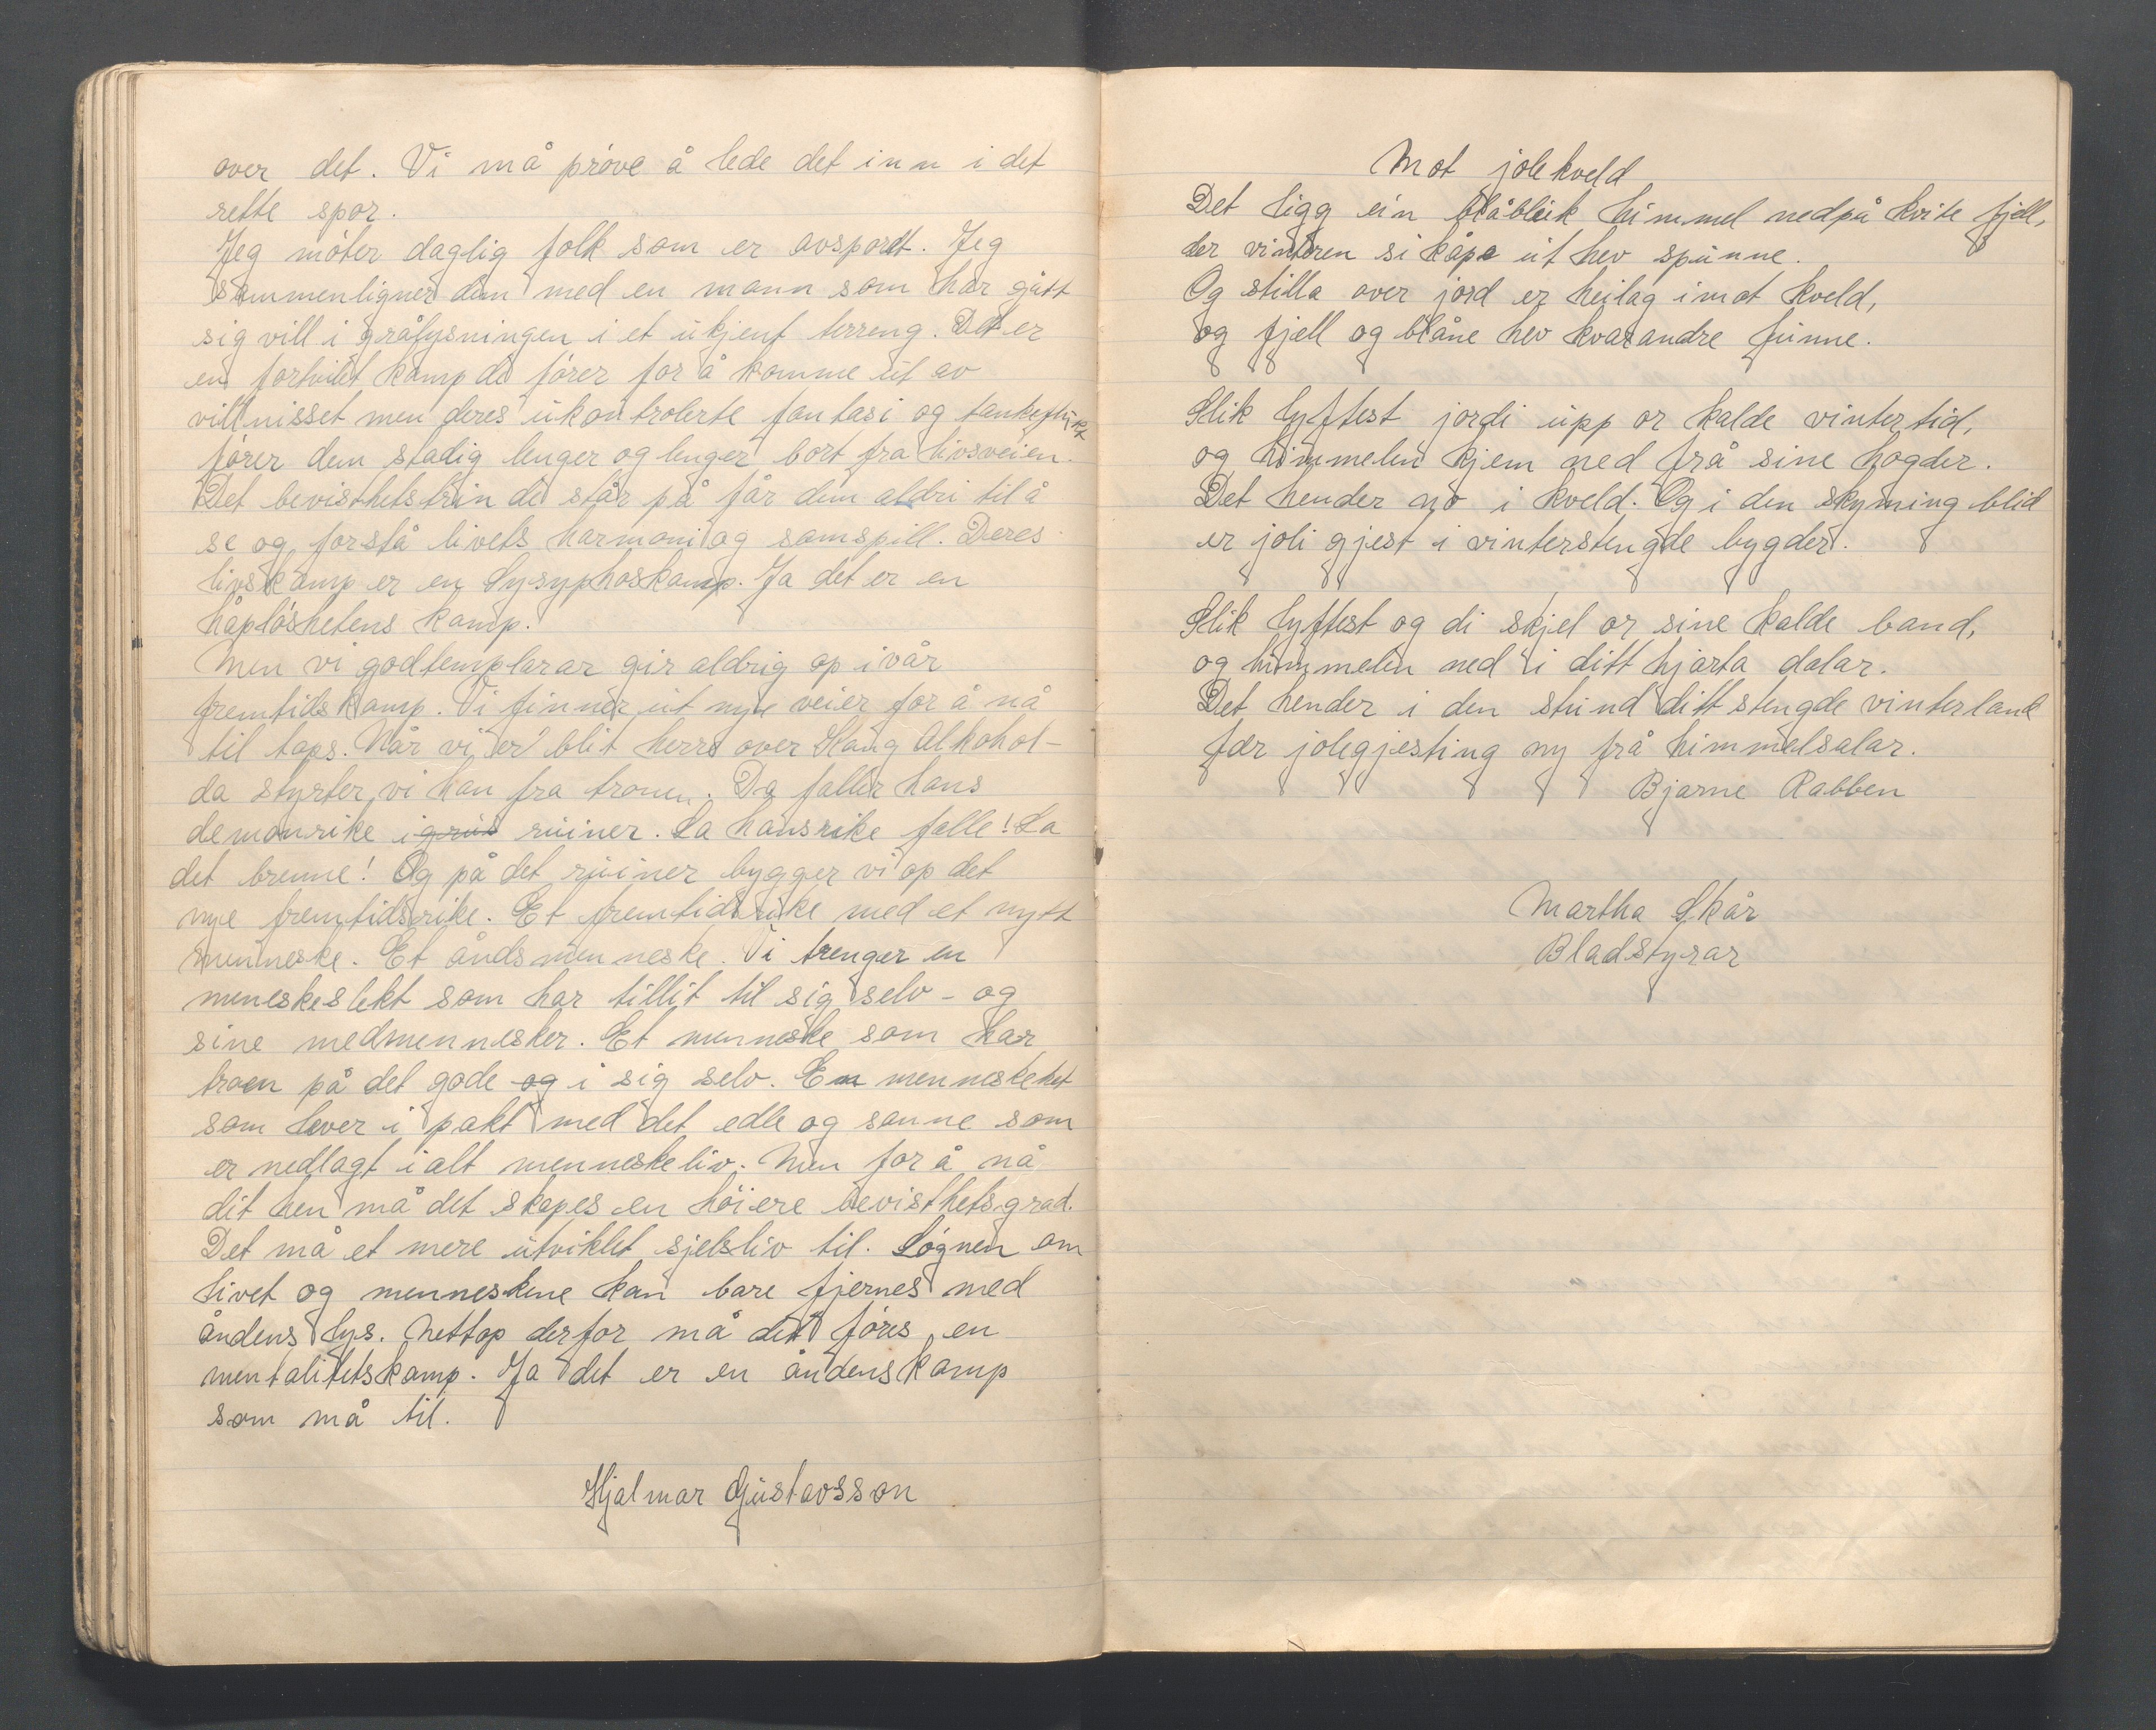 over det. Vi må prøve å lede det inn i det
rette spor.
Jeg møter daglig folk som er avsporet. Jeg
sammenligner dem med en mann som har gått
sig vill i grålysningen i et ukjent terreng. Det er
en fortvilet kamp de fører for å komme ut av
villnisset men deres ukontrolerte fantasi og tankeflukt
fører dem stadig lenger og lenger bort fra livsveien.
Det bevisthetstrin de står på får dem aldri til å
se og forstå livets harmoni og samspill. Deres
livskamp er en Sysyphoskamp. Ja det er en
håpløshetens kamp.
Men vi godtemplarar gir aldrig op i vår
fremtidskamp. Vi finner ut nye veier for å nå
til tops. Når vi er blit herre over Kong Alkohol-
da styrter vi han fra tronen. Da faller hans
demonrike i grus ruiner. La hans rike falle! La
det brenne! Og på det ruiner bygger vi op det
nye fremtidsrike. Et fremtidsrike med et nytt
menneske. Et åndsmenneske. Vi trenger en
meneskeslekt som har tillit til sig selv - og
sine medmennesker. Et menneske som har
troen på det gode og i sig selv. En menneskehet
som lever i pakt med det edle og sanne som
er nedlagt i alt menneskeliv. Men for å nå
dit hen må det skapes en høiere bevisthetsgrad.
Det må et mere utviklet sjelsliv til. Løgnen om
livet og menneskene kan bare fjernes med
åndens lys. Nettop derfor må det føres en
mentalitetskamp. Ja det er en åndenskamp
som må til.
Hjalmar Gustavsson
Mot jolekveld
Det ligg ein blåbleik himmel nedpå kvite fjell,
der vinteren si kåpe ut hev spunne.
Og stilla over jord er heilag imot kveld,
og fjell og blåne hev kvarandre funne.
Slik lyftest jordi upp or kalde vintertid,
og himmelen kjem ned frå sine høgder.
Det hender no i kveld. Og i den skyming blid
er joli gjest i vinterstengde bygder.
Slik lyftest og di sjel or sine kalde band,
og himmelen ned i ditt hjarta dalar.
Det hender i den stund ditt stengde vinterland
fær jolegjesting ny frå himmelsalar.
Bjarne Rabben
Martha Skår
Bladstyrar